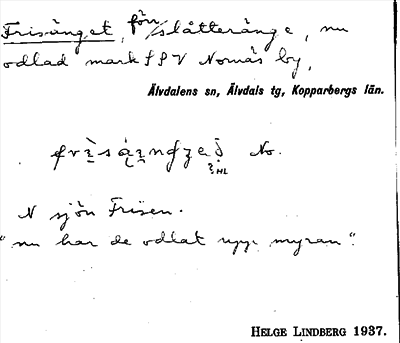 Frisänget, förr slåtteränge, nu
odlad mark SSV Nornäs by,
Älvdalens sn, Älvdals tg, Kopparbergs län.
No.
HL
N sjön Frisen.
"nu har de odlat upp myran".
HELGE LINDBERG 1937.